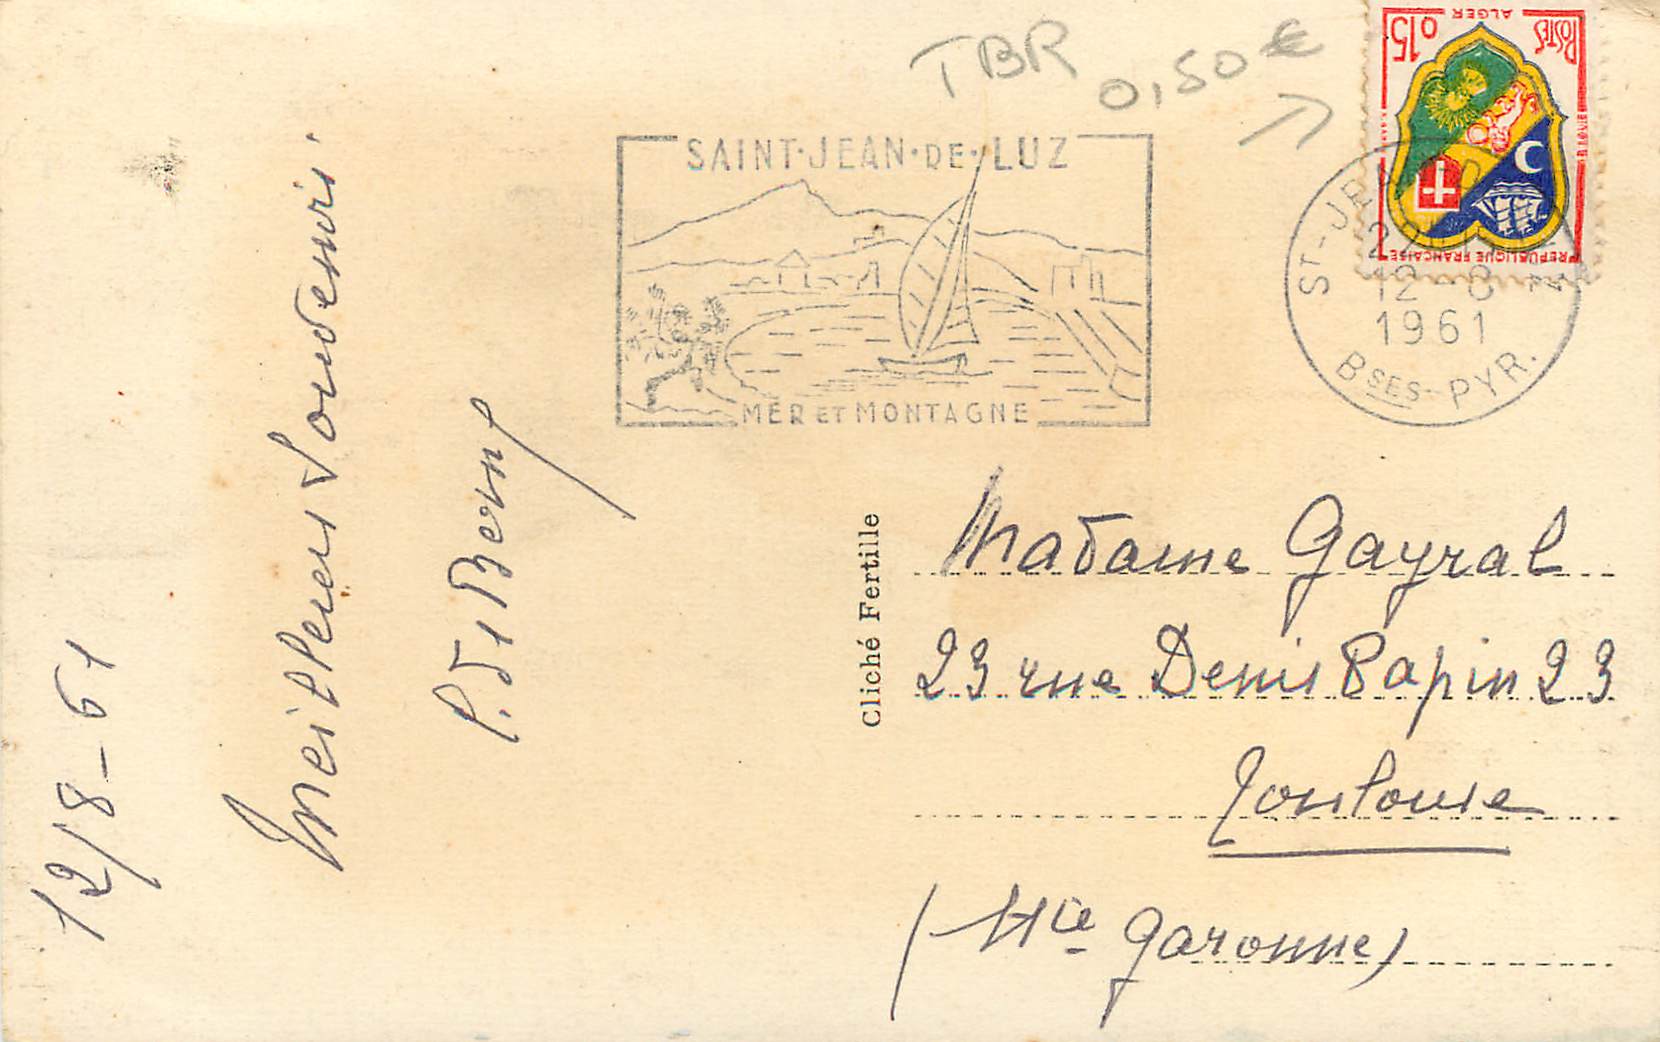 TBR 0,50 €
ALGER
POSTES
0,15
REPUBLIQUE FRANCAISE
SAINT·JEAN·DE·LUZ
MER ET MONTAGNE
ST-JEAN
12-8
1961
BSES-PYR.
12/8-61
Meilleurs Souvenirs.
Cliché Fertille
Madame Gayral
23 rue Denis Papin 23
Toulouse
(Hte Garonne)